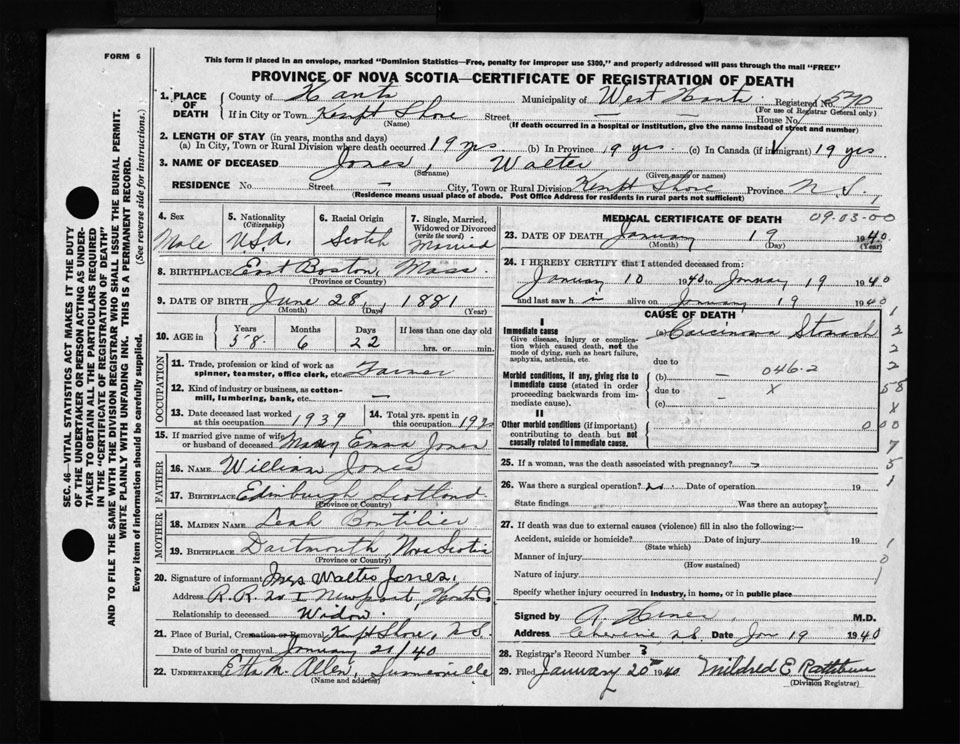 FORM 6
This form if placed in an envelope, marked "Dominion Statistics—Free, penalty for improper use $300," and properly addressed will pass through the mail "FREE"
PROVINCE OF NOVA SCOTIA—CERTIFICATE OF REGISTRATION OF DEATH
SEC. 46—VITAL STATISTICS ACT MAKES IT THE DUTY
OF THE UNDERTAKER OR PERSON ACTING AS UNDER-
TAKER TO OBTAIN ALL THE PARTICULARS REQUIRED
IN THE "CERTIFICATE OF REGISTRATION OF DEATH"
AND TO FILE THE SAME WITH THE DIVISION REGISTRAR WHO SHALL ISSUE THE BURIAL PERMIT.
WRITE PLAINLY WITH UNFADING INK. THIS IS A PERMANENT RECORD.
Every item of information should be carefully supplied. (See reverse side for instructions.)
1. PLACE OF DEATH
County of Hants Municipality of West Hants Registered No. 570
(For use of Registrar General only)
If in City or Town Kempt Shore Street — House No. —
(Name) (If death occurred in a hospital or institution, give the name instead of street and number)
2. LENGTH OF STAY (in years, months and days)
(a) In City, Town or Rural Division where death occurred 19 yrs (b) In Province 19 yrs. (c) In Canada (if immigrant) 19 yrs
3. NAME OF DECEASED Jones, Walter
(Surname) (Given name or names)
RESIDENCE No Street — City, Town or Rural Division Kempt Shore Province N S.
(Residence means usual place of abode. Post Office Address for residents in rural parts not sufficient) 1
4. Sex Male
5. Nationality (Citizenship) U.S.A.
6. Racial Origin Scotch
7. Single, Married, Widowed or Divorced (write the word) Married
8. BIRTHPLACE East Boston, Mass.
(Province or Country)
9. DATE OF BIRTH June 28, 1881
(Month) (Day) (Year)
10. AGE in Years 58 Months 6 Days 22 If less than one day old hrs. or min.
OCCUPATION
11. Trade, profession or kind of work as spinner, teamster, office clerk, etc. Farmer
12. Kind of industry or business, as cotton-mill, lumbering, bank, etc. —
13. Date deceased last worked at this occupation 1939
14. Total yrs. spent in this occupation
15. If married give name of wife or husband of deceased Mary Emma Jones
FATHER
16. NAME William Jones
17. BIRTHPLACE Edinburgh Scotland
(Province or Country)
MOTHER
18. MAIDEN NAME Leah Boutilier
19. BIRTHPLACE Dartmouth, Nova Scotia
(Province or Country)
20. Signature of informant Mrs Walter Jones.
Address R.R. No 1 Newport, Hants Co
Relationship to deceased Widow.
21. Place of Burial, Cremation or Removal Kempt Shore, N.S.
Date of burial or removal January 21/40
22. UNDERTAKER Etta M. Allen, Summerville
(Name and address)
MEDICAL CERTIFICATE OF DEATH
09-03-00
23. DATE OF DEATH January 19 1940
(Month) (Day) (Year)
24. I HEREBY CERTIFY that I attended deceased from:
January 10 1940 to January 19 1940
and last saw h alive on January 19 1940
CAUSE OF DEATH
I
Immediate cause (a) Carcinoma Stomach
Give disease, injury or complica-
tion which caused death, not the
mode of dying, such as heart failure,
asphyxia, asthenia, etc.
due to
Morbid conditions, if any, giving rise to
immediate cause (stated in order
proceeding backwards from im-
mediate cause).
(b) — 046.2
due to X
(c) —
II
Other morbid conditions (if important)
contributing to death but not
causally related to immediate cause.
1
2
2
2
58
X
0 00
7
5
1
25. If a woman, was the death associated with pregnancy?
26. Was there a surgical operation? no. Date of operation 19
State findings Was there an autopsy?
27. If death was due to external causes (violence) fill in also the following:—
Accident, suicide or homicide? Date of injury 19
(State which)
Manner of injury
(How sustained)
Nature of injury
1
0
1
Specify whether injury occurred in Industry, in home, or in public place
Signed by M.D.
Address Cheverie N.S. Date Jan 19 1940
28. Registrar's Record Number 3
29. Filed January 20th 1940 Mildred E.
(Division Registrar)